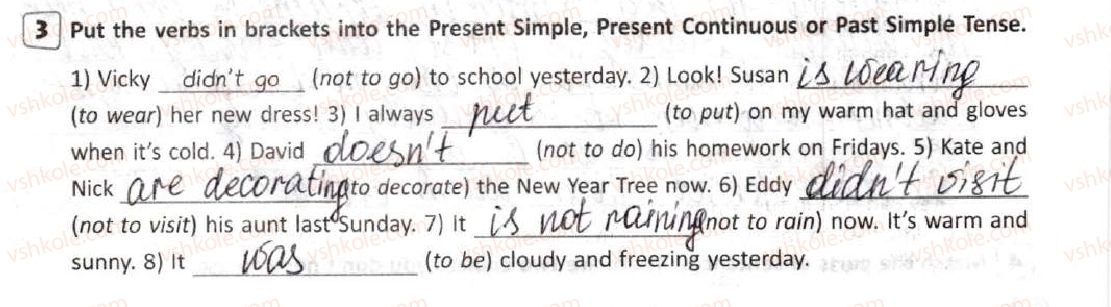 3 Put the verbs in brackets into the Present Simple, Present Continuous or Past Simple Tense.
1) Vicky didn't go (not to go) to school yesterday. 2) Look! Susan is wearing
(to wear) her new dress! 3) I always put (to put) on my warm hat and gloves
when it's cold. 4) David doesn't (not to do) his homework on Fridays. 5) Kate and
Nick are decorating to decorate) the New Year Tree now. 6) Eddy didn't visit
(not to visit) his aunt last Sunday. 7) It is not raining not to rain) now. It's warm and
sunny. 8) It was (to be) cloudy and freezing yesterday.